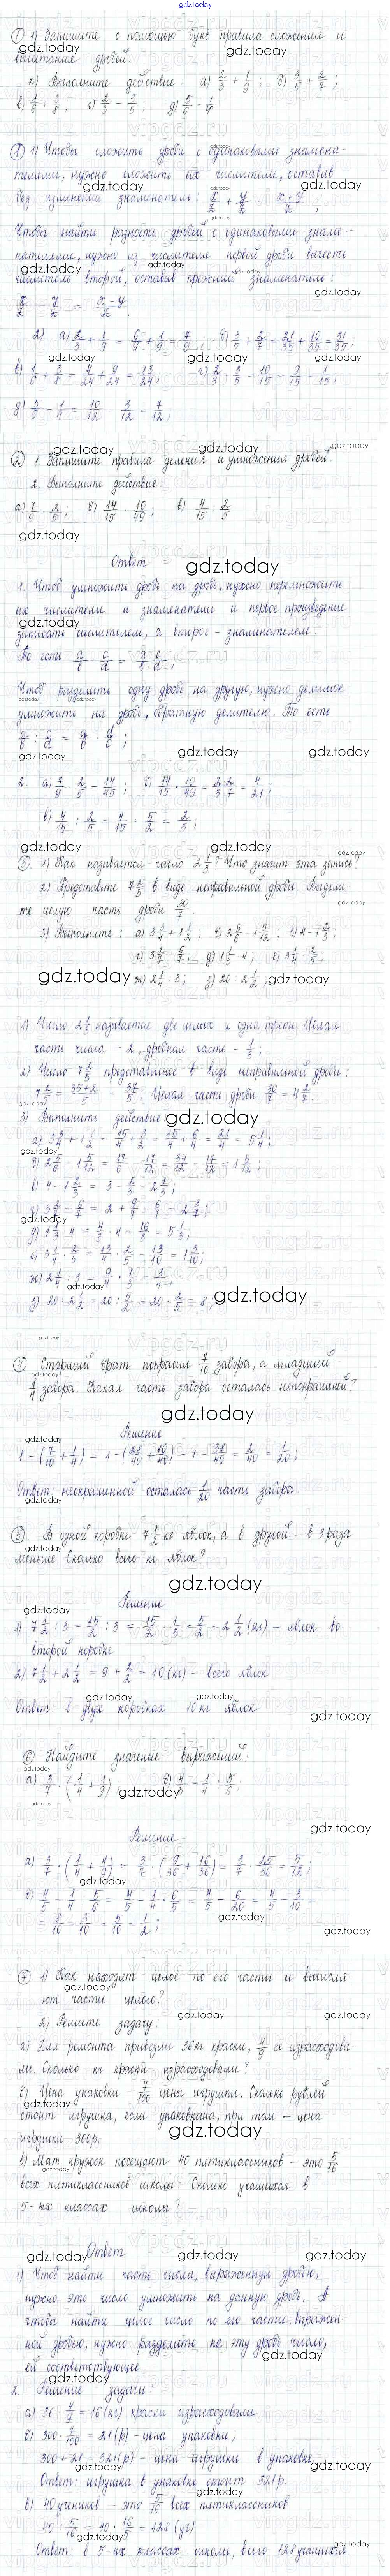 gdz.today
① 1) Запишите с помощью букв правила сложения и
вычитания дробей.
2) Выполните действие: а) 2/3 + 1/9; б) 3/5 + 2/7;
в) 1/6 + 3/8; г) 2/3 − 3/5; д) 5/6 − 1/4
① 1) Чтобы сложить дроби с одинаковыми знамена-
телями, нужно сложить их числители, оставив
без изменения знаменатель: x/z + y/z = x+y/z;
Чтобы найти разность дробей с одинаковыми знаме-
нателями, нужно из числителя первой дроби вычесть
числитель второй, оставив прежний знаменатель:
x/z − y/z = x−y/z.
2) а) 2/3 + 1/9 = 6/9 + 1/9 = 7/9; б) 3/5 + 2/7 = 21/35 + 10/35 = 31/35;
в) 1/6 + 3/8 = 4/24 + 9/24 = 13/24; г) 2/3 − 3/5 = 10/15 − 9/15 = 1/15;
д) 5/6 − 1/4 = 10/12 − 3/12 = 7/12;
② 1. Запишите правила деления и умножения дробей.
2. Выполните действие:
а) 7/9 · 2/5; б) 14/15 · 10/49; в) 4/15 : 2/5
Ответ
gdz.today
1. Чтоб умножить дробь на дробь, нужно перемножить
их числители и знаменатели и первое произведение
записать числителем, а второе – знаменателем.
То есть a/b · c/d = a·c/b·d;
Чтоб разделить одну дробь на другую, нужно делимое
умножить на дробь, обратную делителю. То есть
a/b : c/d = a/b · d/c;
2. а) 7/9 · 2/5 = 14/45; б) 14/15 · 10/49 = 2·2/3·7 = 4/21;
в) 4/15 : 2/5 = 4/15 · 5/2 = 2/3;
1) Как называется число 2 1/3? Что значит эта запись?
2) Представьте 7 2/5 в виде неправильной дроби. Выдели-
те целую часть дроби 30/7.
3) Выполните: а) 3 3/4 + 1 1/2; б) 2 5/6 − 1 5/12; в) 4 − 1 2/3;
г) 3 2/7 − 6/7; д) 1 1/3 · 4; е) 3 1/4 · 2/5;
gdz.today ж) 2 1/4 : 3; з) 20 : 2 1/2; gdz.today
1) Число 2 1/3 называется две целых и одна треть. Целая
часть числа – 2, дробная часть – 1/3;
2) Число 7 2/5 представленное в виде неправильной дроби:
7 2/5 = 35+2/5 = 37/5; Целая часть дроби 30/7 = 4 2/7.
3) Выполнить действие gdz.today
а) 3 3/4 + 1 1/2 = 15/4 + 3/2 = 15/4 + 6/4 = 21/4 = 5 1/4;
б) 2 5/6 − 1 5/12 = 17/6 − 17/12 = 34/12 − 17/12 = 1 5/12;
в) 4 − 1 2/3 = 3 − 2/3 = 2 1/3;
г) 3 2/7 − 6/7 = 2 + 9/7 − 6/7 = 2 3/7;
д) 1 1/3 · 4 = 4/3 · 4 = 16/3 = 5 1/3;
е) 3 1/4 · 2/5 = 13/4 · 2/5 = 13/10 = 1 3/10;
ж) 2 1/4 : 3 = 9/4 · 1/3 = 3/4;
з) 20 : 2 1/2 = 20 : 5/2 = 20 · 2/5 = 8; gdz.today
④ Старший брат покрасил 7/10 забора, а младший –
1/4 забора. Какая часть забора осталась непокрашеной?
gdz.today
Решение
1 − (7/10 + 1/4) = 1 − (28/40 + 10/40) = 1 − 38/40 = 2/40 = 1/20;
Ответ: неокрашенной осталась 1/20 часть забора.
⑤. В одной коробке 7 1/2 кг яблок, а в другой – в 3 раза
меньше. Сколько всего кг яблок?
gdz.today
Решение
1) 7 1/2 : 3 = 15/2 : 3 = 15/2 · 1/3 = 5/2 = 2 1/2 (кг) – яблок во
второй коробке
2) 7 1/2 + 2 1/2 = 9 + 2/2 = 10 (кг) – всего яблок
Ответ: в двух коробках 10 кг яблок
gdz.today
⑥ Найдите значение выражений:
а) 3/7 · (1/4 + 4/9) б) 4/5 − 1/4 : 5/6;
Решение
а) 3/7 · (1/4 + 4/9) = 3/7 · (9/36 + 16/36) = 3/7 · 25/36 = 5/12;
б) 4/5 − 1/4 : 5/6 = 4/5 − 1/4 · 6/5 = 4/5 − 6/20 = 4/5 − 3/10 =
= 8/10 − 3/10 = 5/10 = 1/2;
⑦ 1) Как находят целое по его части и вычисля-
ют части целого?
2) Решите задачу:
а) Для ремонта привезли 36 кг краски, 4/9 её израсходова-
ли. Сколько кг краски израсходовали?
б) Цена упаковки – 7/100 цены игрушки. Сколько рублей
стоит игрушка, если упакована, при том – цена
игрушки 300р.
в) Мат. кружок посещают 40 пятиклассников – это 5/16
всех пятиклассников школы. Сколько учащихся в
5-ых классах школы?
Ответ
1) Чтоб найти часть числа, выраженную дробью,
нужно это число умножить на данную дробь. А
чтобы найти целое число по его части, выражен-
ной дробью, нужно разделить на эту дробь число,
ей соответствующее.
2. Решение задачи:
а) 36 · 4/9 = 16 (кг) краски израсходовали
б) 300 · 7/100 = 21 (р) – цена упаковки;
300 + 21 = 321 (р) – цена игрушки в упаковке
Ответ: игрушка в упаковке стоит 321 р.
в) 40 учеников – это 5/16 всех пятиклассников
40 : 5/16 = 40 · 16/5 = 128 (уч)
Ответ: в 5-ых классах школы, всего 128 учащихся